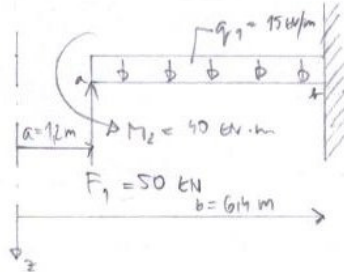 q₁ = 15 kN/m
a
b
a=1,2 m
M₂ = 40 kN·m
F₁ = 50 kN
b = 6,4 m
z